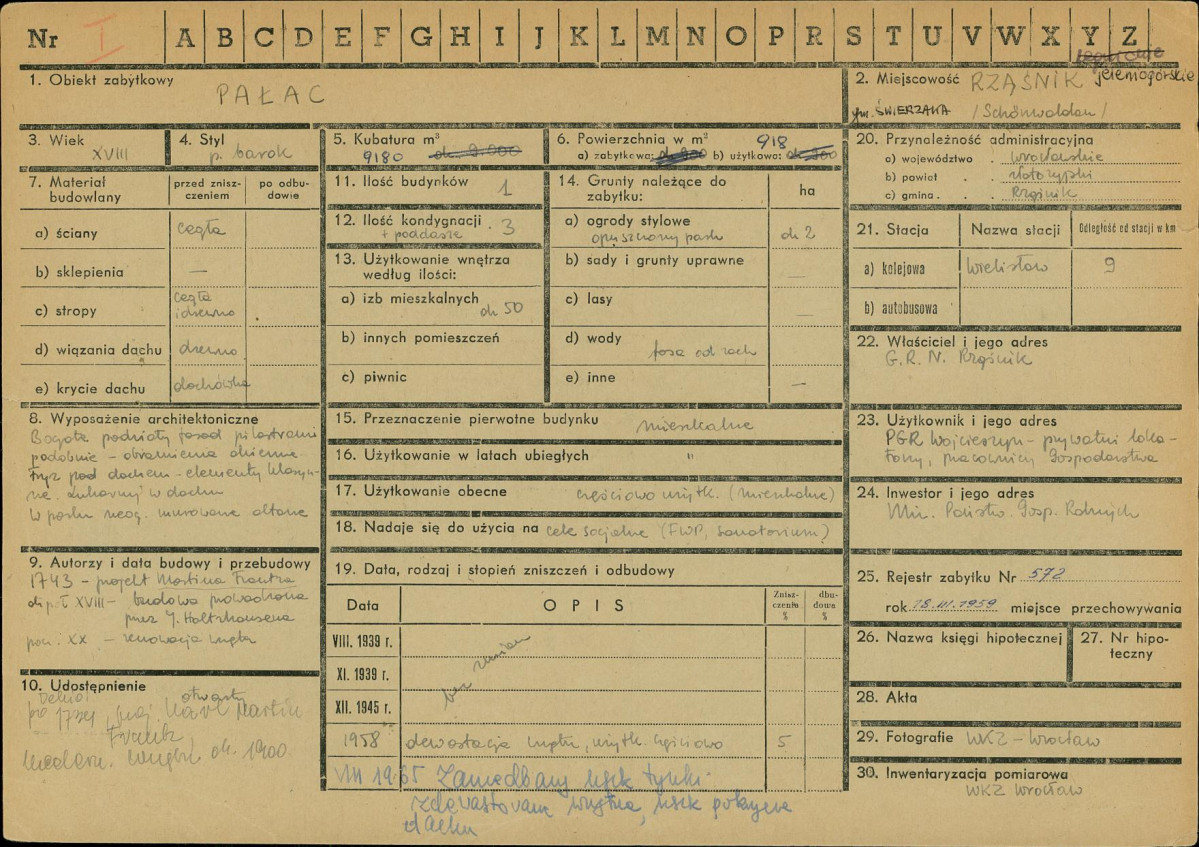 Nr I A B C D E F G H I J K L M N O P R S T U V W X Y Z
1. Obiekt zabytkowy
PAŁAC
2. Miejscowość RZĄŚNIK jeleniogórskie
gm. ŚWIERZAWA /Schönwaldau/
3. Wiek
XVIII
4. Styl
p. barok
5. Kubatura m³
9180 ok. 9.000
6. Powierzchnia w m² 918
a) zabytkowa: ok. 900 b) użytkowa: ok. 900
7. Materiał budowlany
przed zniszczeniem
po odbudowie
a) ściany cegła
b) sklepienia —
c) stropy cegła i drewno
d) wiązania dachu drewno
e) krycie dachu dachówka
8. Wyposażenie architektoniczne
Bogate podziały fasad pilastrami
podobnie – obramienia okienne
Fryz pod dachem – elementy klasycz-
ne. Lukarny w dachu
W parku neog. murowana altana
9. Autorzy i data budowy i przebudowy
1743 – projekt Martina Frantza
XVIII – budowa prowadzona
przez J. Holtzhausena
pocz. XX – renowacja wnętrz
10. Udostępnienie
otwarty
Karl Martin
Frantz
ok. 1900
11. Ilość budynków 1
12. Ilość kondygnacji 3
+ poddasze
13. Użytkowanie wnętrza
według ilości:
a) izb mieszkalnych ok 50
b) innych pomieszczeń
c) piwnic
14. Grunty należące do
zabytku:
ha
a) ogrody stylowe
opuszczony park ok 2
b) sady i grunty uprawne —
c) lasy —
d) wody
fosa od zach
e) inne —
15. Przeznaczenie pierwotne budynku mieszkalne
16. Użytkowanie w latach ubiegłych "
17. Użytkowanie obecne częściowo użytk. (mieszkalne)
18. Nadaje się do użycia na cele socjalne (FWP, sanatorium)
19. Data, rodzaj i stopień zniszczeń i odbudowy
Data
OPIS
Zniszczenia %
dbudowa %
VIII. 1939 r.
XI. 1939 r.
XII. 1945 r.
bez zmian
1958 dewastacja wnętrz, użytk. częściowo 5
VIII 1965 Zaniedbany, ubytk tynki.
zdewastowane wnętrza, pokrycia
dachu
20. Przynależność administracyjna
a) województwo wrocławskie
b) powiat złotoryjski
c) gmina Rząśnik
21. Stacja
Nazwa stacji
Odległość od stacji w km
a) kolejowa Wielisław 9
b) autobusowa
22. Właściciel i jego adres
G.R.N. Rząśnik
23. Użytkownik i jego adres
PGR Wojcieszyn – prywatni loka-
torzy, pracownicy Gospodarstwa
24. Inwestor i jego adres
Min. Państw. Gosp. Rolnych
25. Rejestr zabytku Nr 572
rok 18.III.1959 miejsce przechowywania
26. Nazwa księgi hipotecznej
27. Nr hipoteczny
28. Akta
29. Fotografie WKZ – Wrocław
30. Inwentaryzacja pomiarowa
WKZ Wrocław